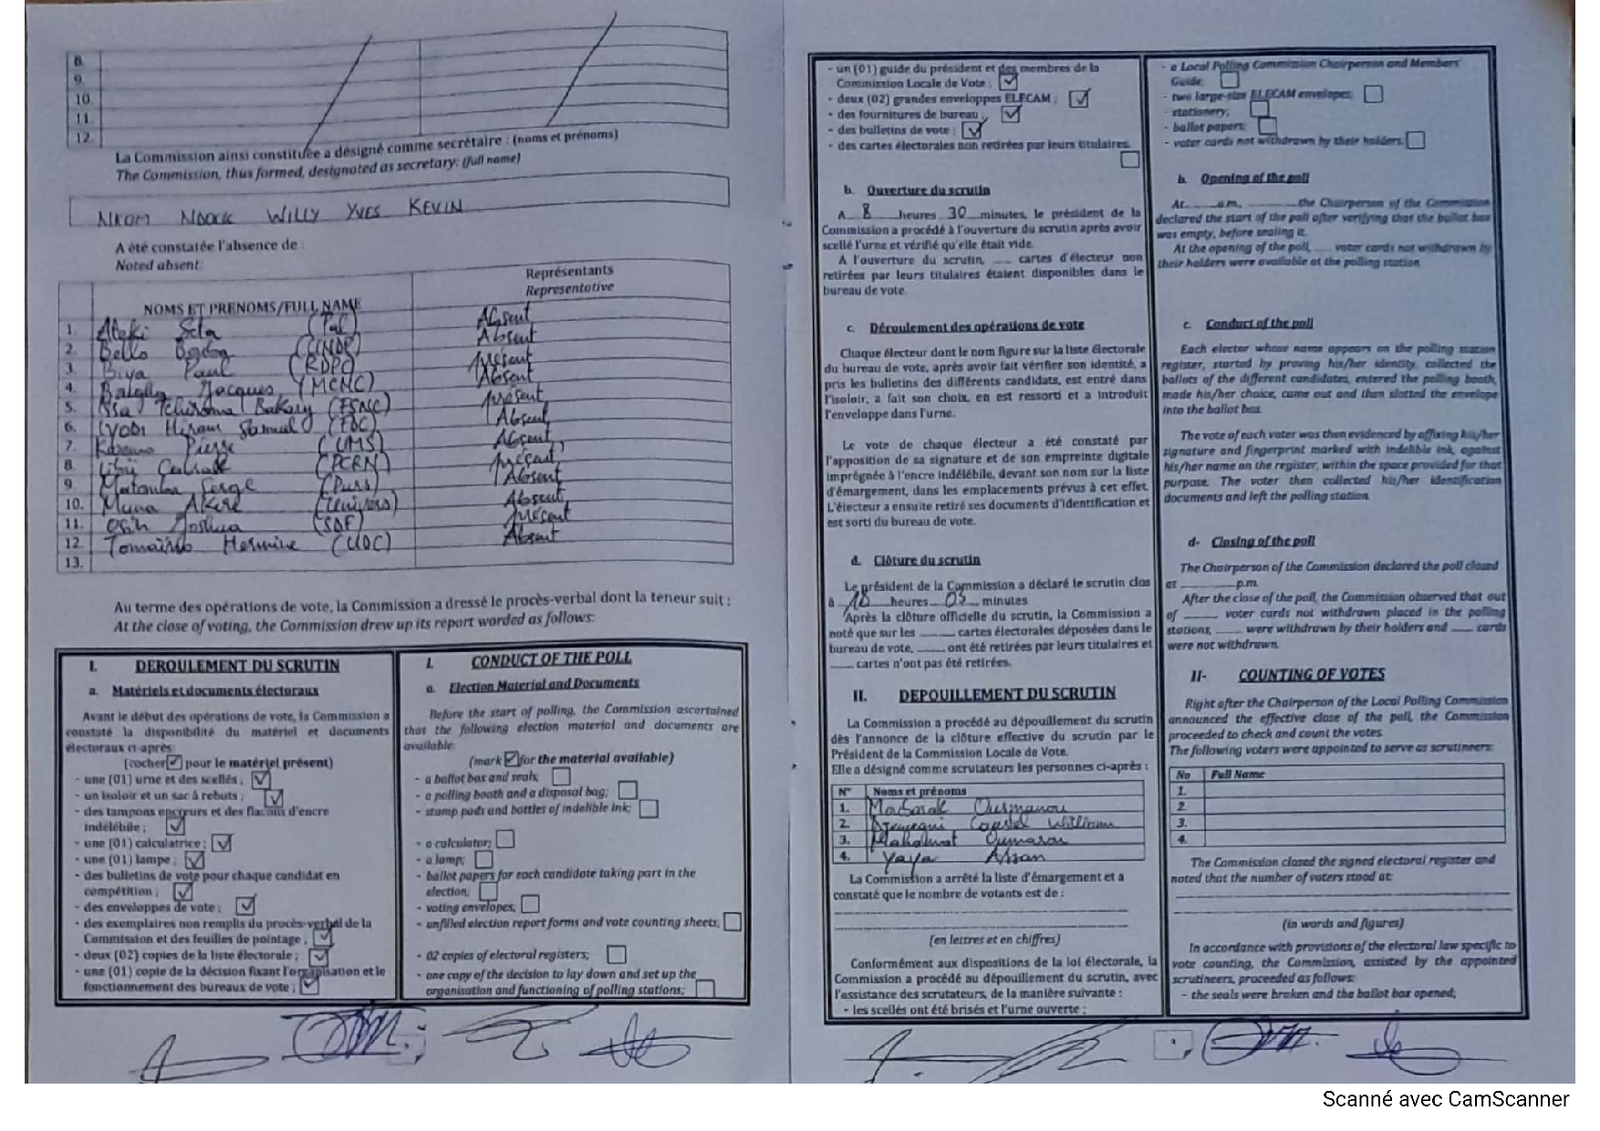 8.
9.
10.
11.
12.
La Commission ainsi constituée a désigné comme secrétaire : (noms et prénoms)
The Commission, thus formed, designated as secretary: (full name)
NKOM NDOCK WILLY YVES KEVIN
A été constatée l'absence de :
Noted absent:
NOMS ET PRENOMS/FULL NAME
Représentants
Representative
1. Ateki Seta (Pal) Absent
2. Bello Bouba (UNDP) Absent
3. Biya Paul (RDPC) présent
4. Jacques (MCNC) Absent
5. Issa Tchiroma Bakary (FSNC) présent
6. Iyodi Hiram Samuel (FDC) Absent
7. Kwemo Pierre (UMS) Absent
8. Libii Cabral (PCRN) présent
9. Matomba Serge (Purs) Absent
10. Muna Akere (Univers) Absent
11. Osih Joshua (SDF) présent
12. Tomaïno Hermine (UDC) Absent
13.
Au terme des opérations de vote, la Commission a dressé le procès-verbal dont la teneur suit :
At the close of voting, the Commission drew up its report worded as follows:
I. DEROULEMENT DU SCRUTIN
a. Matériels et documents électoraux
Avant le début des opérations de vote, la Commission a
constaté la disponibilité du matériel et documents
électoraux ci-après:
(cocher ☑ pour le matériel présent)
- une (01) urne et des scellés ; ☑
- un isoloir et un sac à rebuts ; ☑
- des tampons encreurs et des flacons d'encre
indélébile ; ☑
- une (01) calculatrice ; ☑
- une (01) lampe ; ☑
- des bulletins de vote pour chaque candidat en
compétition ; ☑
- des enveloppes de vote ; ☑
- des exemplaires non remplis du procès-verbal de la
Commission et des feuilles de pointage ; ☑
- deux (02) copies de la liste électorale ; ☑
- une (01) copie de la décision fixant l'organisation et le
fonctionnement des bureaux de vote ; ☑
I. CONDUCT OF THE POLL
a. Election Material and Documents
Before the start of polling, the Commission ascertained
that the following election material and documents are
available:
(mark ☑ for the material available)
- a ballot box and seals; ☐
- a polling booth and a disposal bag; ☐
- stamp pads and bottles of indelible ink; ☐
- a calculator; ☐
- a lamp; ☐
- ballot papers for each candidate taking part in the
election; ☐
- voting envelopes; ☐
- unfilled election report forms and vote counting sheets; ☐
- 02 copies of electoral registers; ☐
- one copy of the decision to lay down and set up the
organisation and functioning of polling stations; ☐
- un (01) guide du président et des membres de la
Commission Locale de Vote ; ☑
- deux (02) grandes enveloppes ELECAM ; ☑
- des fournitures de bureau ; ☑
- des bulletins de vote ; ☑
- des cartes électorales non retirées par leurs titulaires.
☐
b. Ouverture du scrutin
A 8 heures 30 minutes, le président de la
Commission a procédé à l'ouverture du scrutin après avoir
scellé l'urne et vérifié qu'elle était vide.
A l'ouverture du scrutin, ____ cartes d'électeur non
retirées par leurs titulaires étaient disponibles dans le
bureau de vote.
c. Déroulement des opérations de vote
Chaque électeur dont le nom figure sur la liste électorale
du bureau de vote, après avoir fait vérifier son identité, a
pris les bulletins des différents candidats, est entré dans
l'isoloir, a fait son choix, en est ressorti et a introduit
l'enveloppe dans l'urne.
Le vote de chaque électeur a été constaté par
l'apposition de sa signature et de son empreinte digitale
imprégnée à l'encre indélébile, devant son nom sur la liste
d'émargement, dans les emplacements prévus à cet effet.
L'électeur a ensuite retiré ses documents d'identification et
est sorti du bureau de vote.
d. Clôture du scrutin
Le président de la Commission a déclaré le scrutin clos
à 18 heures 05 minutes
Après la clôture officielle du scrutin, la Commission a
noté que sur les ____ cartes électorales déposées dans le
bureau de vote, ____ ont été retirées par leurs titulaires et
____ cartes n'ont pas été retirées.
II. DEPOUILLEMENT DU SCRUTIN
La Commission a procédé au dépouillement du scrutin
dès l'annonce de la clôture effective du scrutin par le
Président de la Commission Locale de Vote.
Elle a désigné comme scrutateurs les personnes ci-après :
N° Noms et prénoms
1. Ousmanou
2. William
3. Oumarou
4. Yaya Assan
La Commission a arrêté la liste d'émargement et a
constaté que le nombre de votants est de :
(en lettres et en chiffres)
Conformément aux dispositions de la loi électorale, la
Commission a procédé au dépouillement du scrutin, avec
l'assistance des scrutateurs, de la manière suivante :
- les scellés ont été brisés et l'urne ouverte ;
- a Local Polling Commission Chairperson and Members'
Guide; ☐
- two large-size ELECAM envelopes; ☐
- stationery; ☐
- ballot papers; ☐
- voter cards not withdrawn by their holders. ☐
b. Opening of the poll
At ____ a.m, ____ the Chairperson of the Commission
declared the start of the poll after verifying that the ballot box
was empty, before sealing it.
At the opening of the poll, ____ voter cards not withdrawn by
their holders were available at the polling station.
c. Conduct of the poll
Each elector whose name appears on the polling station
register, started by proving his/her identity, collected the
ballots of the different candidates, entered the polling booth,
made his/her choice, came out and then slotted the envelope
into the ballot box.
The vote of each voter was then evidenced by affixing his/her
signature and fingerprint marked with indelible ink, against
his/her name on the register, within the space provided for that
purpose. The voter then collected his/her identification
documents and left the polling station.
d- Closing of the poll
The Chairperson of the Commission declared the poll closed
at ____ p.m.
After the close of the poll, the Commission observed that out
of ____ voter cards not withdrawn placed in the polling
stations, ____ were withdrawn by their holders and ____ cards
were not withdrawn.
II- COUNTING OF VOTES
Right after the Chairperson of the Local Polling Commission
announced the effective close of the poll, the Commission
proceeded to check and count the votes.
The following voters were appointed to serve as scrutineers:
No Full Name
1.
2.
3.
4.
The Commission closed the signed electoral register and
noted that the number of voters stood at:
(in words and figures)
In accordance with provisions of the electoral law specific to
vote counting, the Commission, assisted by the appointed
scrutineers, proceeded as follows:
- the seals were broken and the ballot box opened;
Scanné avec CamScanner